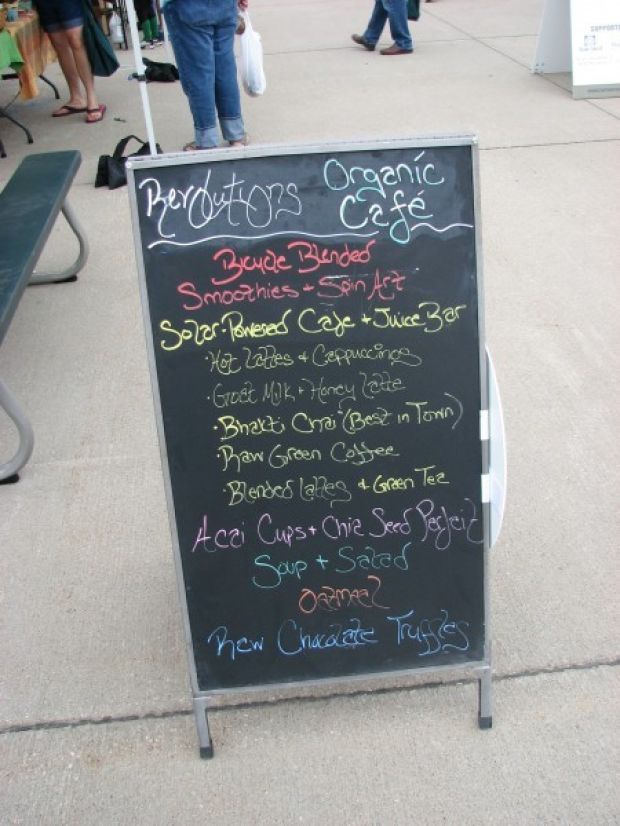 Revolutions Organic Café
Bicycle Blended
Smoothies + Spin Art
Solar-Powered Cafe + Juice Bar
·Hot Lattes & Cappuccinos
·Goat Milk + Honey Latte
·Bhakti Chai (Best in Town)
·Raw Green Coffee
·Blended Lattes & Green Tea
Acai Cups + Chia Seed Parfait
Soup + Salad
Oatmeal
Raw Chocolate Truffles